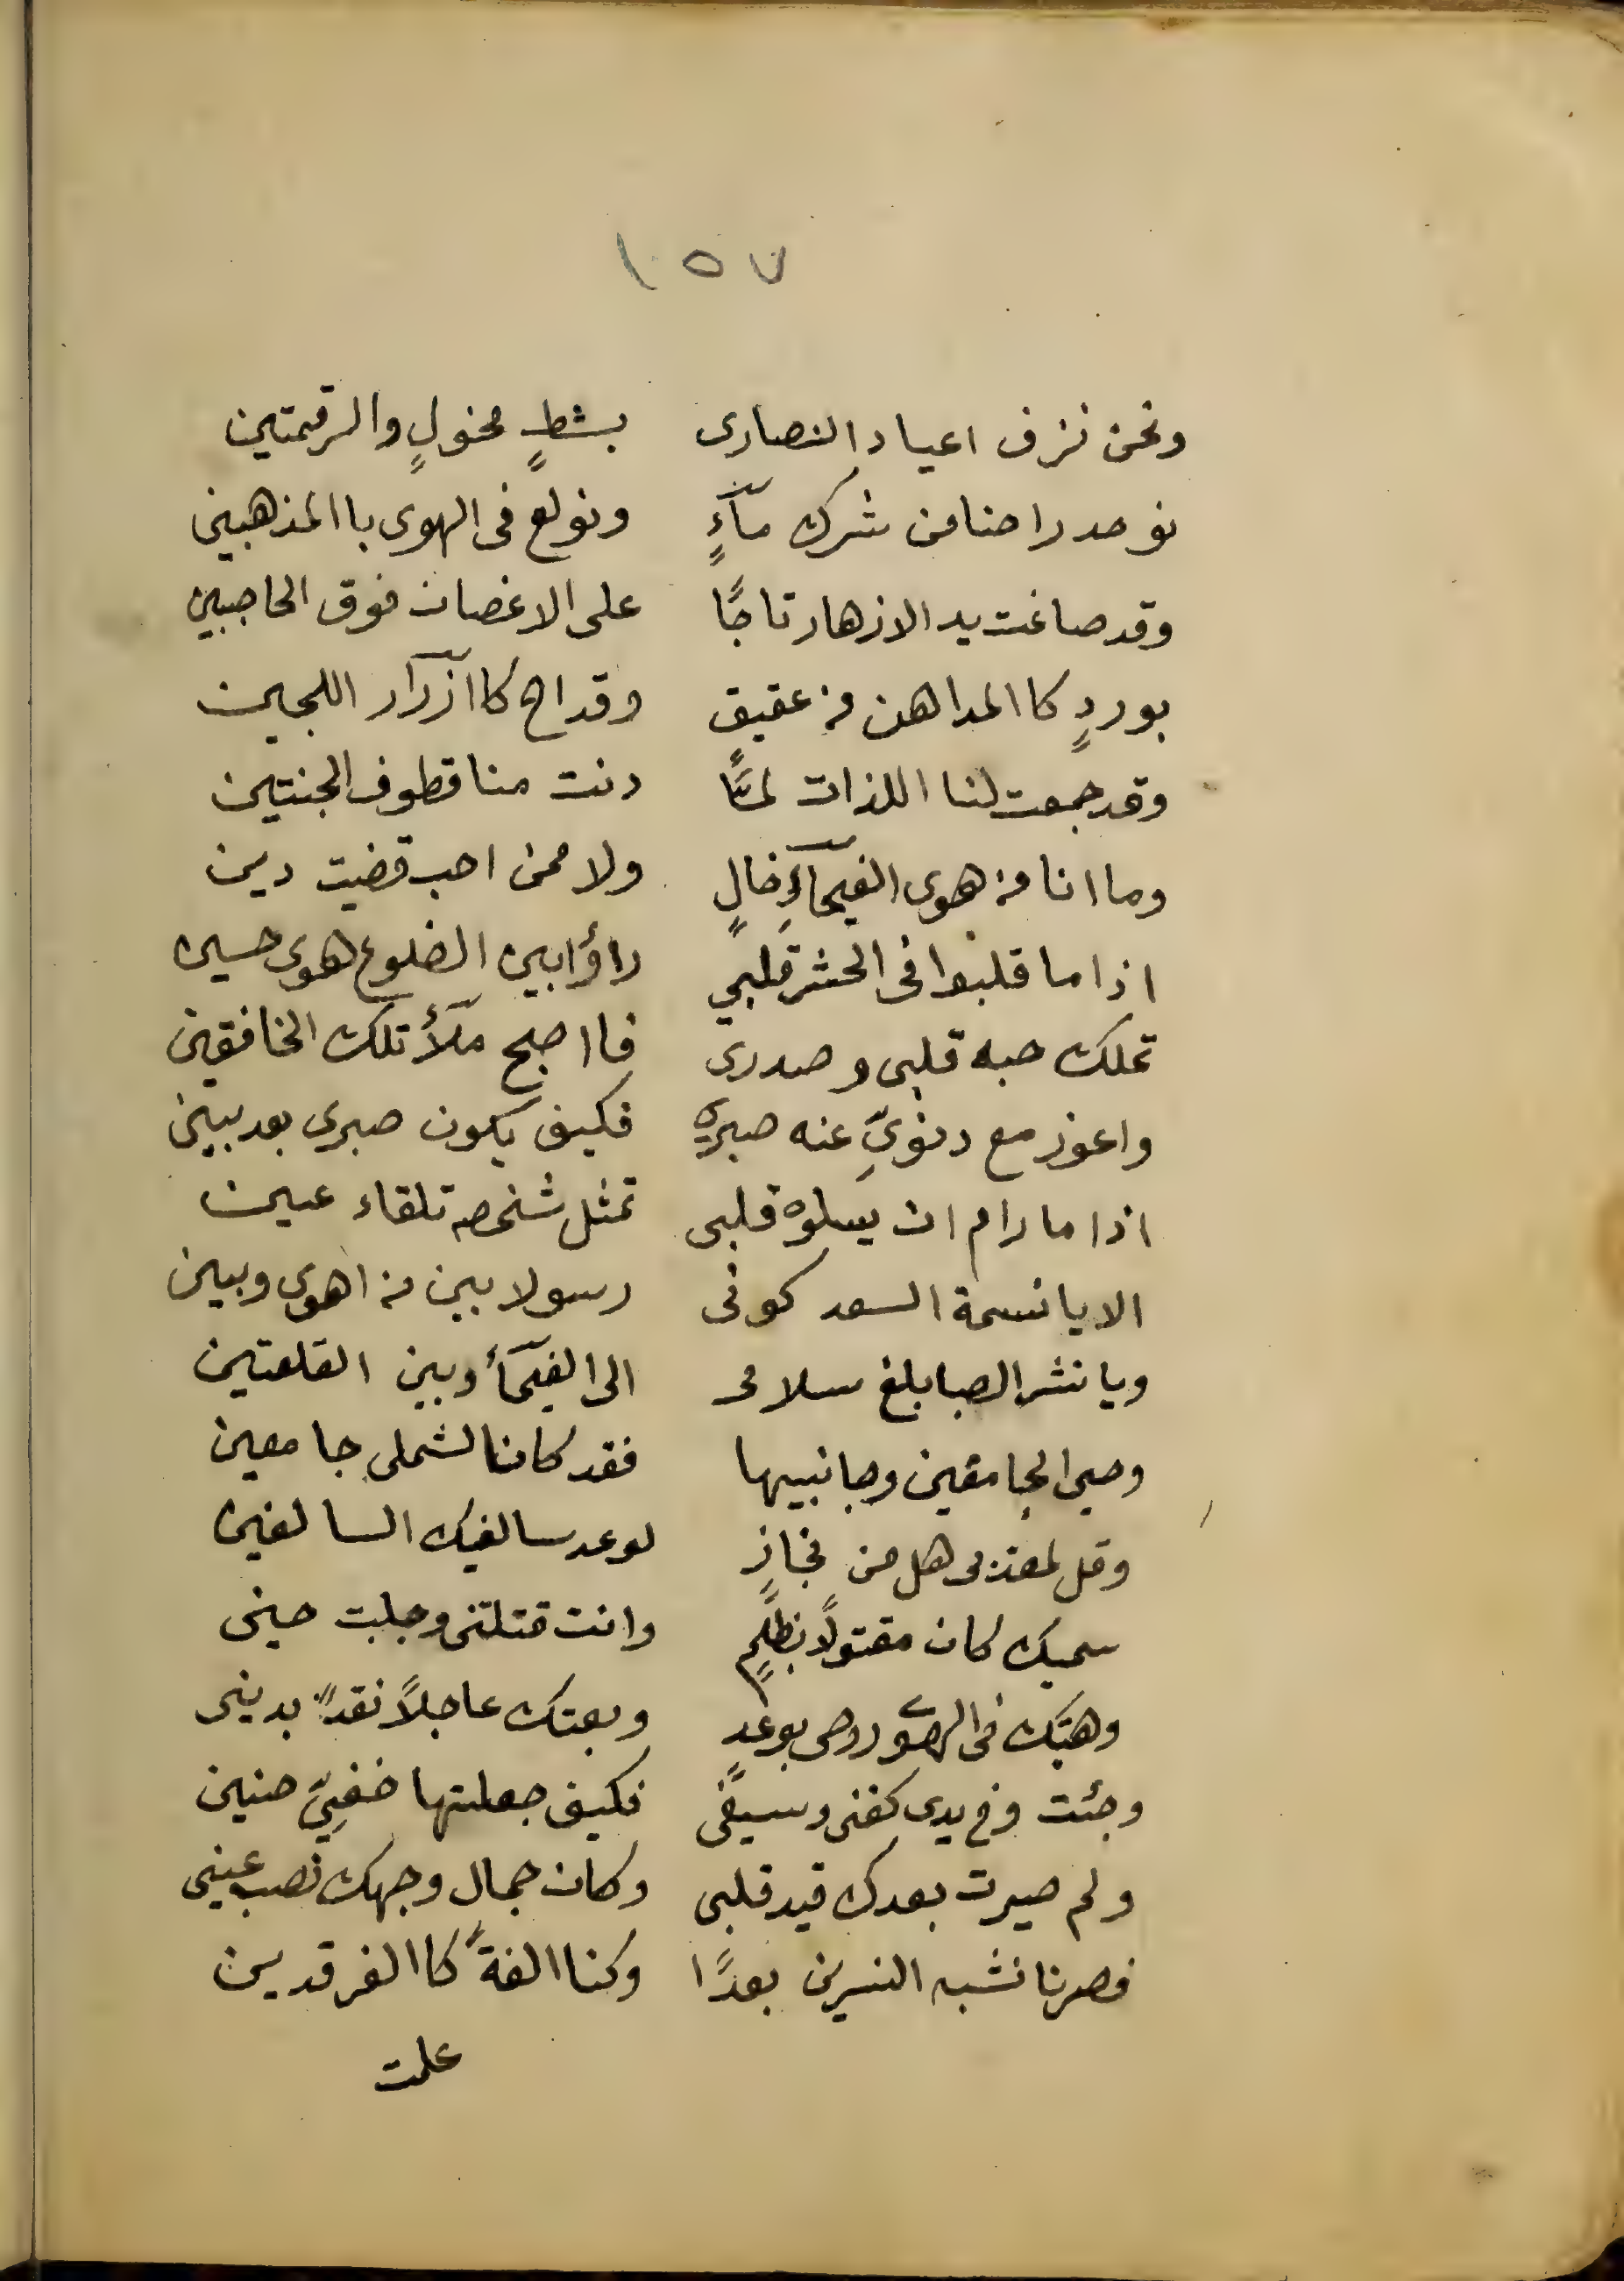 ١٥٧
ونحن نزف اعياد النصارى بشطٍ مخولٍ والرقمتين
نوحد راحنا من شرك مآءٍ ونولع فى الهوى باالمذهبين
وقد صاغت يد الازهار تاجًا على الاغصان فوق الحاجبين
بوردٍ كاالمداهن من عقيق وقداح كاازرآر اللجين
وقد جمعت لنا اللذات لمّا دنت منا قطوف الجنتين
وما انا من هوى الفيحآءِ خالٍ ولا ممن احب قضيت دين
اذا ما قلبوا فى الحشر قلبي راؤا بين الضلوع هوى حسين
تملك حبه قلبى وصدرى فااصبح ملآٔ تلك الخافقين
واعوز مع دنوىِّ عنه صبري فكيف يكون صبرى بعد بين
اذا ما رام ان يسلوه قلبى تمثل شخصه تلقاء عين
الا يا نسمة السعد كونى رسولا بين من اهوى وبين
ويا نشر الصبا بلغ سلامى الى الفيحآٔ وبين القلعتين
وحيى الجامعين وجانبيها فقد كانا لشملى جامعين
وقل لمعذبى هل من نجازٍ لوعد سالفيك السالفين
سميك كان مقتولاً بظلمٍ وانت قتلتنى وجلبت حينى
وهبتك فى الهوى روحى بوعدٍ وبعتك عاجلاً نقدًا بدينى
وجئت وفى يدى كفنى وسيفى فكيف جعلتها خفيّ حنين
ولم صيرت بعدك قيد قلبى وكان جمال وجهك نصب عينى
فصرنا نشبه النسرين بعدًا وكنا الفةً كاالفرقدين
علمت